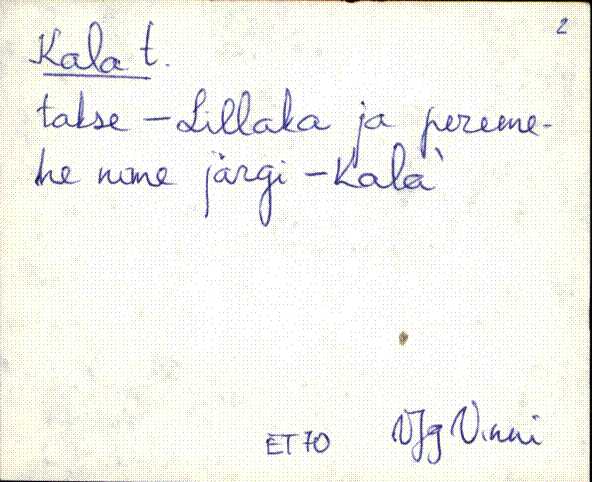 2
Kala t.
takse - Lillaka ja pereme-
he nime järgi - Kala`
ET 70 VJg Vinni